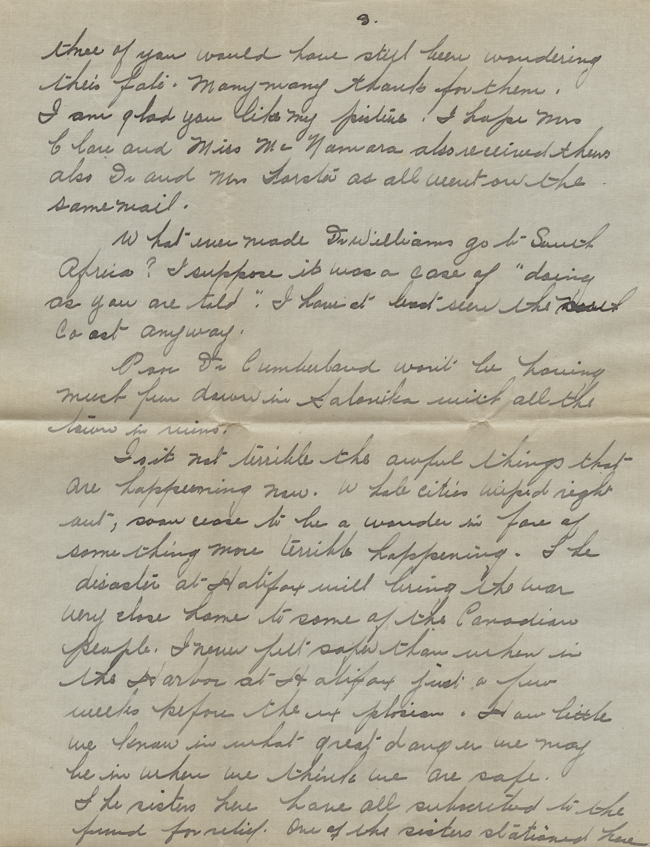 3.
three of you would have still been wondering
their fate. Many many thanks for them.
I am glad you like my picture. I hope Mrs
Clare and Miss Mc Namara also received theirs
also Dr and Mrs as all went on the
same mail.
What ever made Dr Williams go to South
Africa? I suppose it was a case of "doing
as you are told". I haven't seen the
Coast anyway.
Poor Dr Cumberland won't be having
much fun down in Salonika with all the
town in ruins.
Is it not terrible the awful things that
are happening now. Whole cities wiped right
out, soon cease to be a wonder in face of
something more terrible happening. The
disaster at Halifax will bring the war
very close home to some of the Canadian
people. I never felt safer than when in
the Harbor at Halifax just a few
weeks before the explosion. How little
we know in what great danger we may
be in when we think we are safe.
The sisters here have all subscribed to the
fund for relief. One of the sisters stationed here